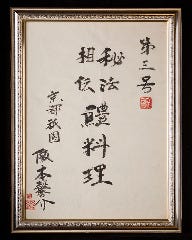 第三号
秘法
相伝
鱧料理
京都祇園
阪本